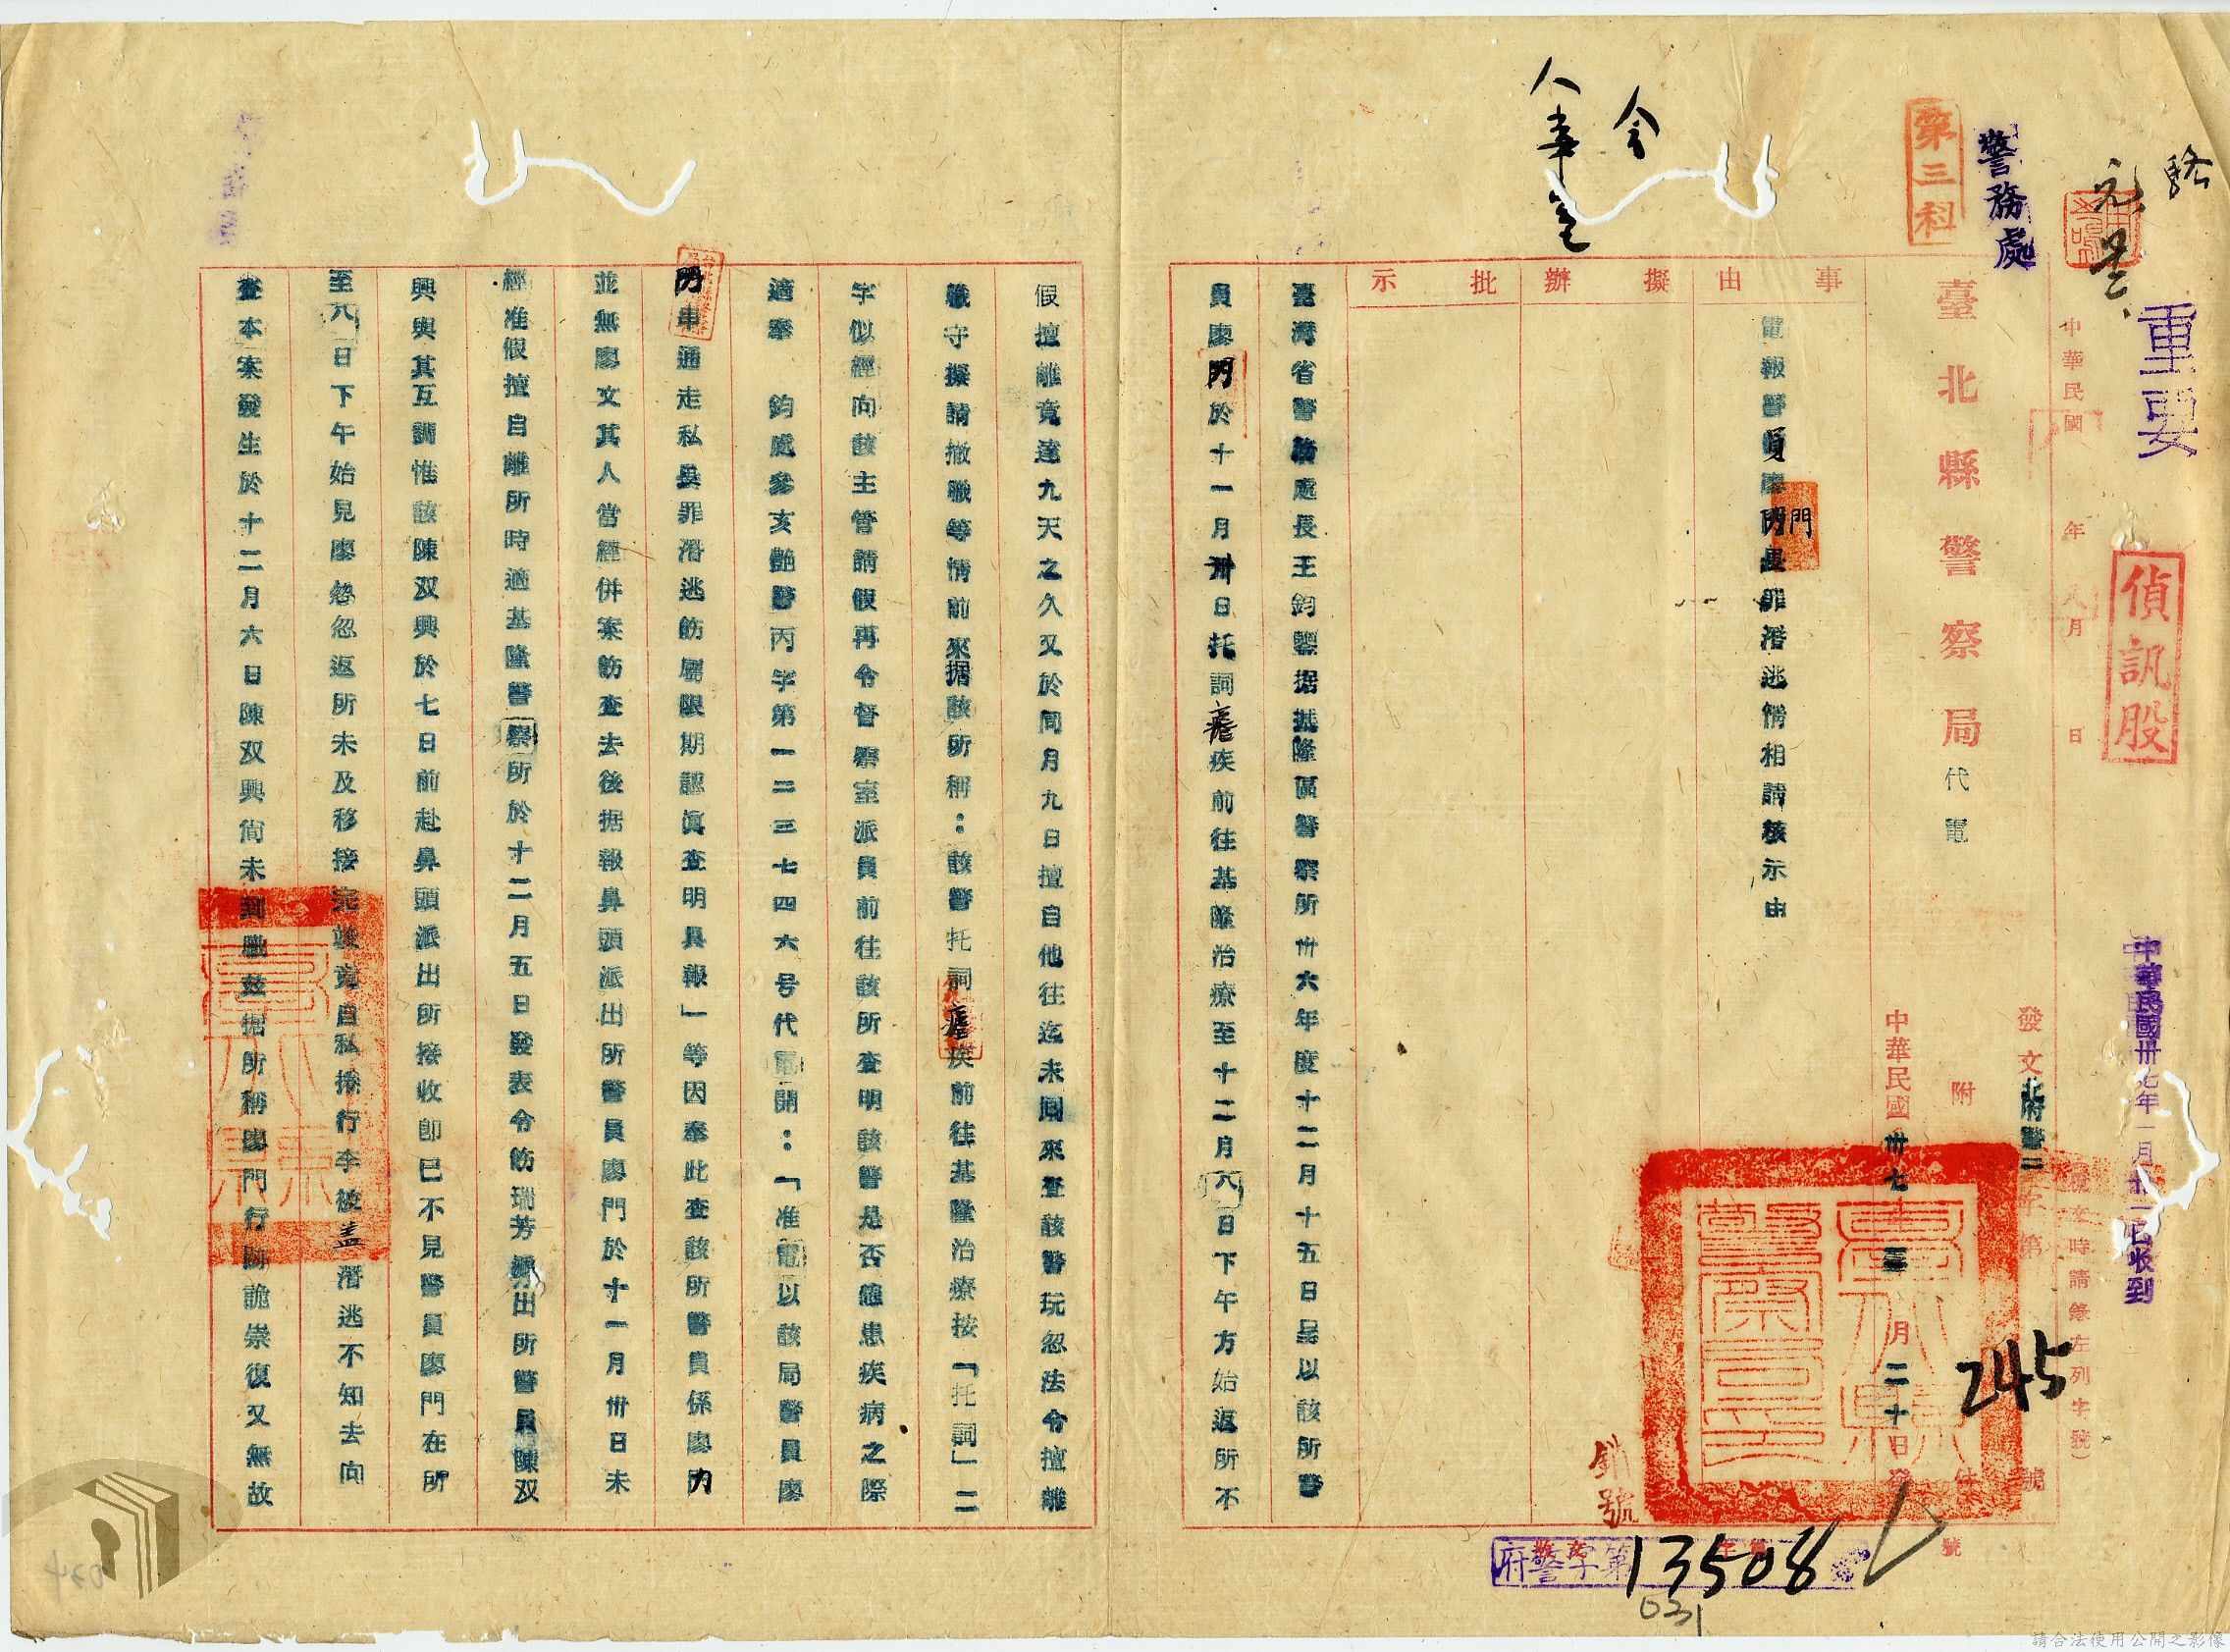 重要
偵訊股
警務處
第三科
中華民國 年 月 日
中華民國卅七年一月廿二日收到
發文北府警二字第245號
(復文時請錄左列字號)
附 件 號
臺北縣警察局代電
中華民國卅七年壹月二十日發
事由
電報警員廖門畏罪潛逃情相請核示由
擬辦
批示
人事室
臺灣省警務處長王鈞鑒据基隆區警察所卅六年度十二月十五日呈以該所警
員廖門於十一月卅日托詞瘧疾前往基隆治療至十二月八日下午方始返所不
假擅離竟達九天之久又於同月九日擅自他往迄未回來查該警玩忽法令擅離
職守擬請撤職等情前來据該所稱：該警托詞瘧疾前往基隆治療按「托詞」二
字似經向該主管請假再令督察室派員前往該所查明該警是否確患疾病之際
適奉 鈞處參亥艷警丙字第一二三七四六号代電開：「准電以該局警員廖
門串通走私畏罪潛逃飭屬限期認真查明具報」等因奉此查該所警員係廖門
並無廖文其人當經併案飭查去後据報鼻頭派出所警員廖門於十一月卅日未
經准假擅自離所時適基隆警察所於十二月五日發表令飭瑞芳派出所警員陳双
興與其互調惟該陳双興於七日前赴鼻頭派出所接收即已不見警員廖門在所
至八日下午始見廖忽忽返所未及移接完竣竟自私捲行李被盖潛逃不知去向
查本案發生於十二月六日陳双興尚未到職茲据所稱廖門行動詭祟復又無故
銷號
府警字第13508號
031
034
請合法使用公開之影像